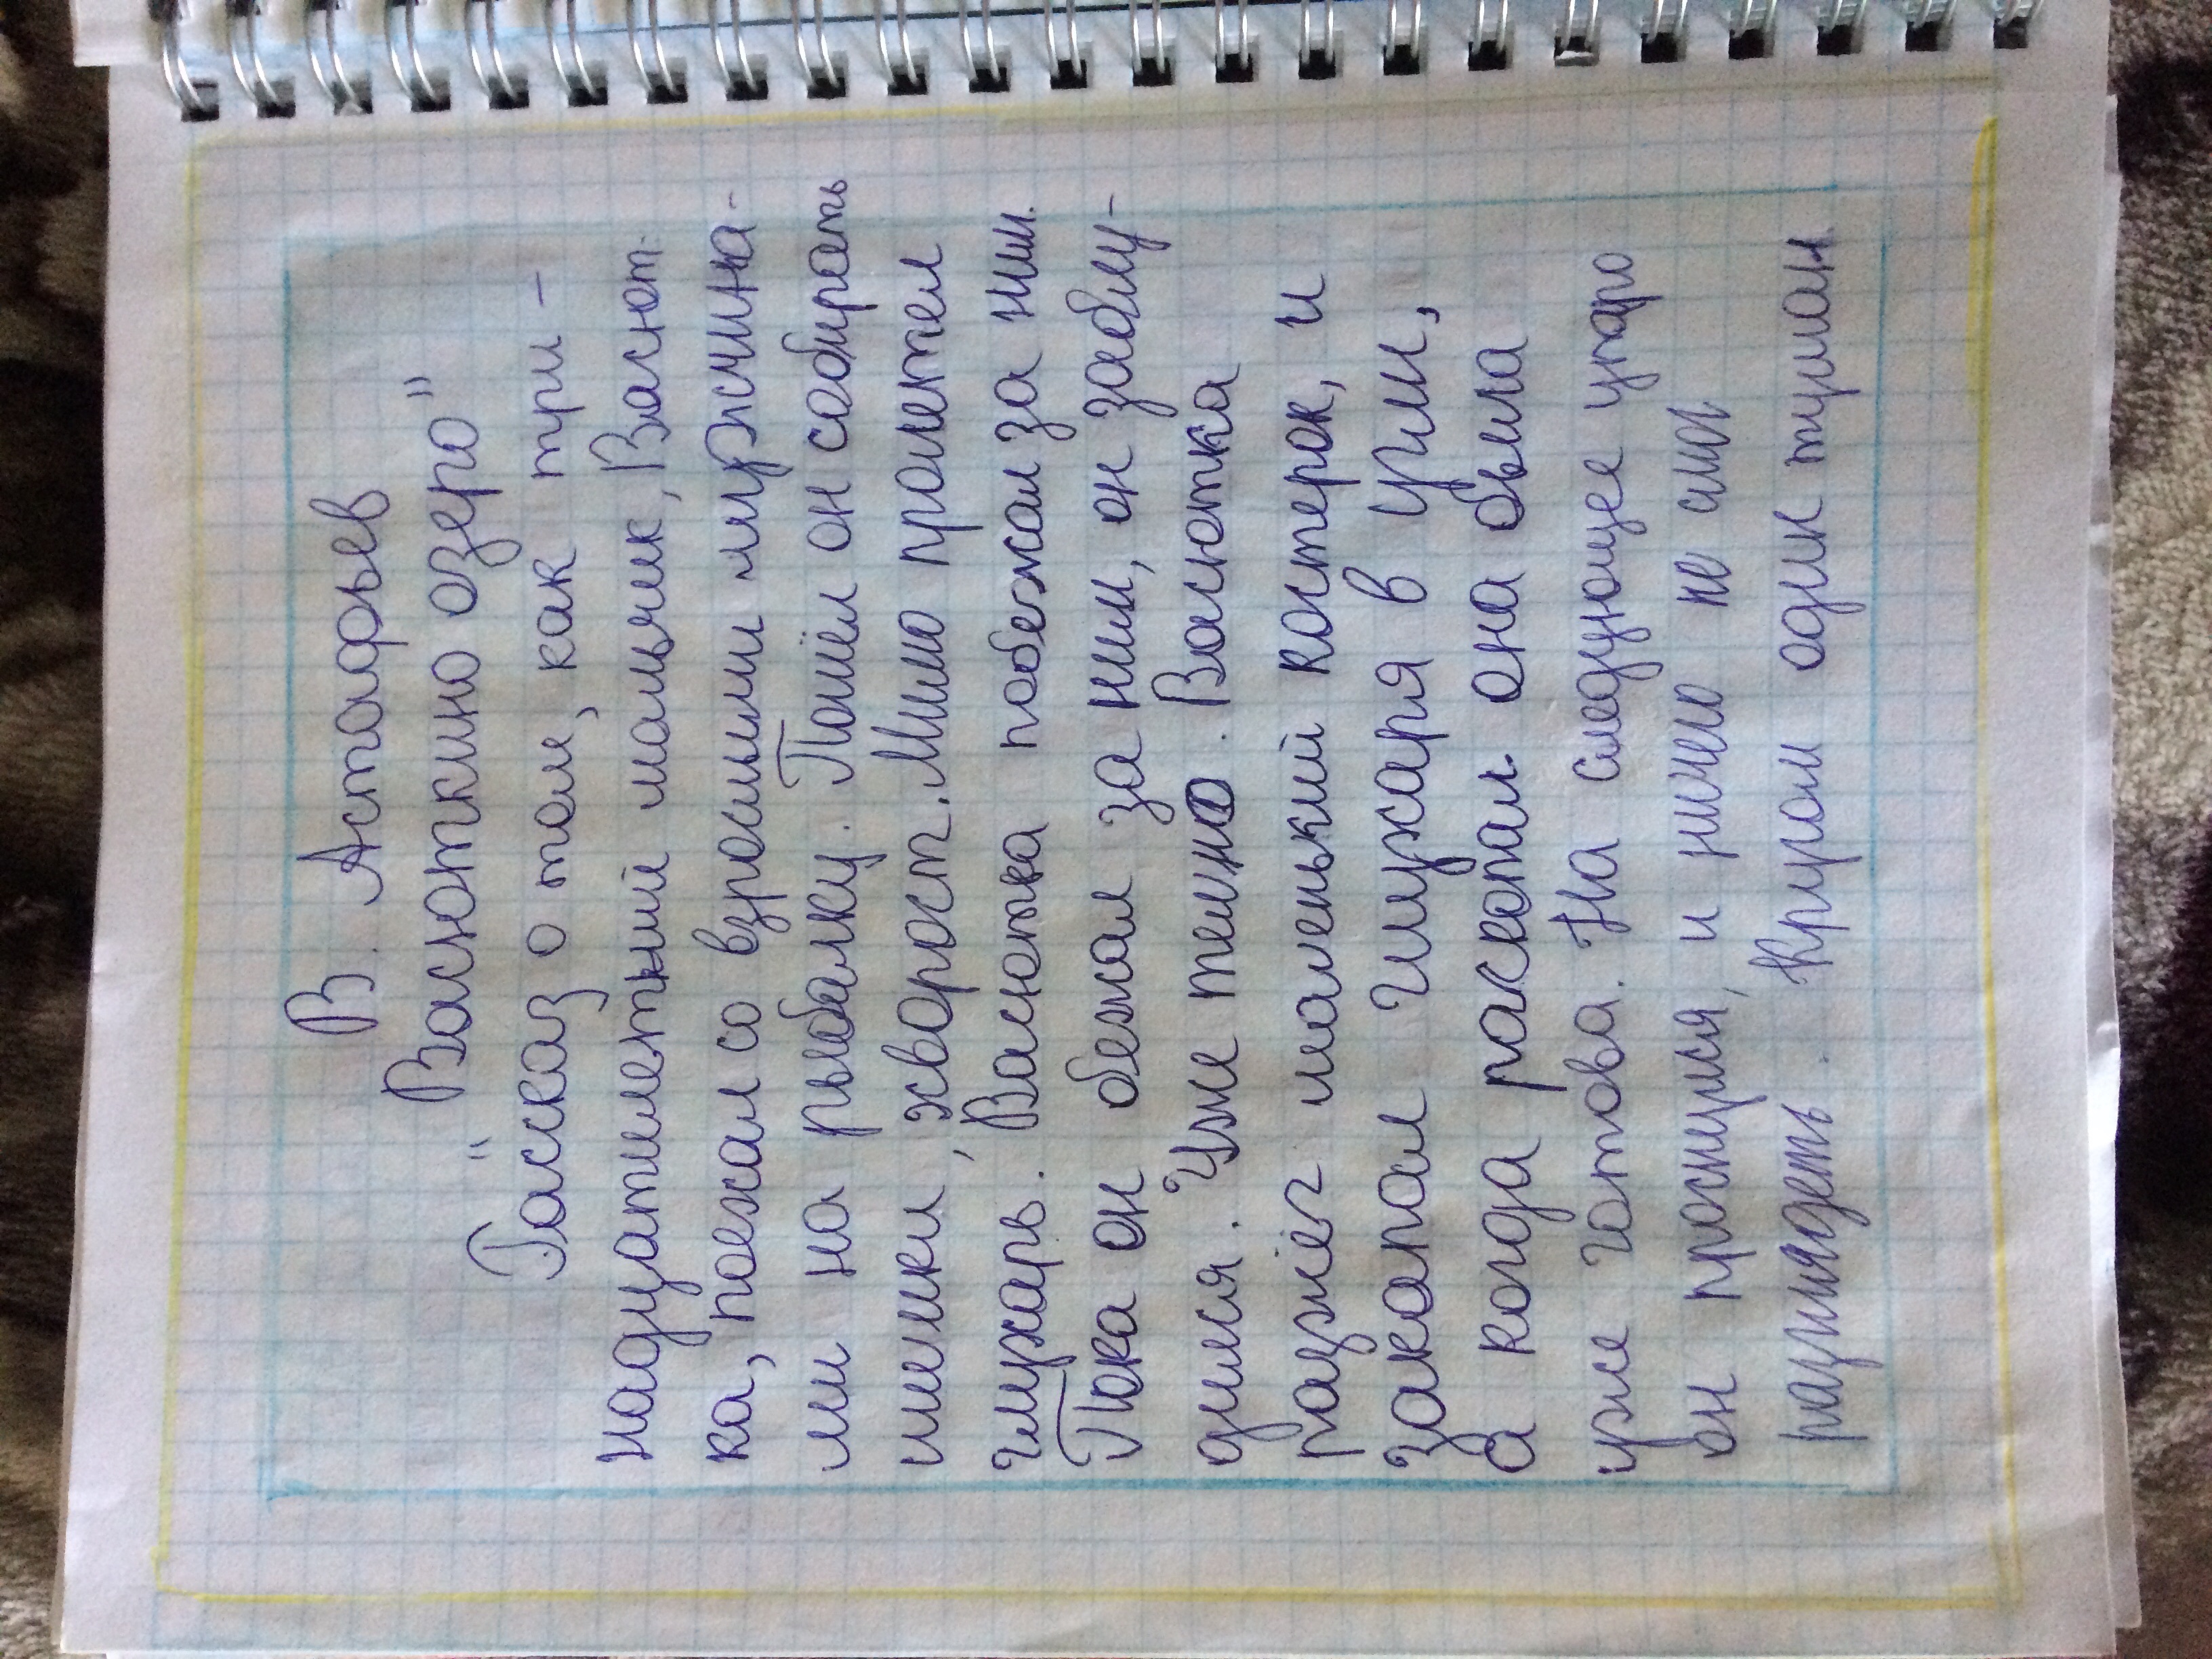 В. Астафьев
"Васюткино озеро"
Рассказ о том, как три-
надцатилетний мальчик, Васют-
ка, поехал со взрослыми мужчина-
ми на рыбалку. Пошёл он собирать
шишки, хворост. Мимо пролетел
глухарь. Васютка побежал за ним.
Пока он бежал за ним, он заблу-
дился. Уже темно. Васютка
разжёг маленький костерок, и
закопал глухаря в угли,
а когда раскопал она была
уже готова. На следующее утро
он проснулся, и ничего не смог
разглядеть. Кругом один туман